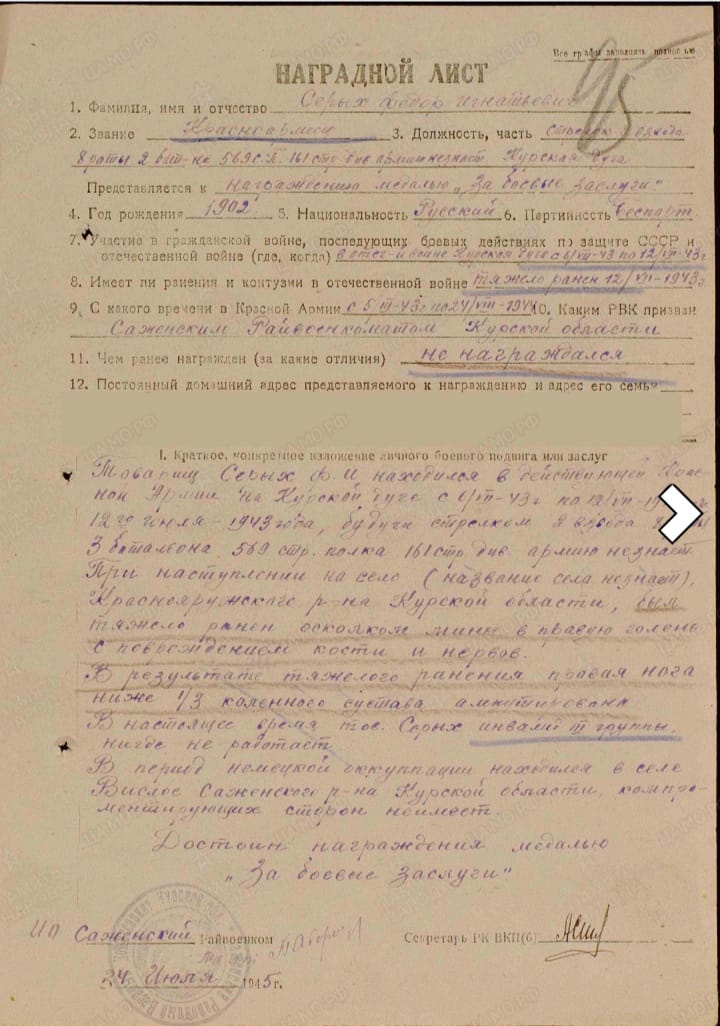 Все графы заполнить полностью
95
НАГРАДНОЙ ЛИСТ
1. Фамилия, имя и отчество Серых Федор Игнатьевич
2. Звание Красноармеец 3. Должность, часть стрелок взвода
8 роты 2 бат-на 569 с.п. 161 стр. див армию незнает Курская дуга
Представляется к награждению медалью „За боевые заслуги"
4. Год рождения 1902 5. Национальность Русский 6. Партийность беспарт.
7. Участие в гражданской войне, последующих боевых действиях по защите СССР и
отечественной войне (где, когда) в отеч-й войне Курская дуга с 6/VII-43 по 12/VII-43г
8. Имеет ли ранения и контузии в отечественной войне тяжело ранен 12/VII-1943г
9. С какого времени в Красной Армии 10. Каким РВК призван
Саженским Райвоенкоматом Курской области
11. Чем ранее награжден (за какие отличия) не награждался
12. Постоянный домашний адрес представляемого к награждению и адрес его семьи
I. Краткое, конкретное изложение личного боевого подвига или заслуг
Товарищ Серых Ф.И находился в действующей Крас-
ной Армии на Курской дуге с 6/VII-43г по 12/VII-
12го июля-1943 года, будучи стрелком 2 взвода
3 батальона 569 стр. полка 161 стр див армию незнает.
При наступлении на село (название села незнает),
Краснояружского р-на Курской области, был
тяжело ранен осколком мины в правую голень
с повреждением кости и нервов.
В результате тяжелого ранения правая нога
ниже 1/3 коленного сустава ампутирована
В настоящее время тов. Серых инвалид III группы,
нигде не работает
В период немецкой оккупации находился в селе
Вислое Саженского р-на Курской области, компро-
ментирующих сторон неимеет.
Достоин награждения медалью
„За боевые заслуги"
ИО Саженский Райвоенком Секретарь РК ВКП(б)
24 Июля 1945 г.